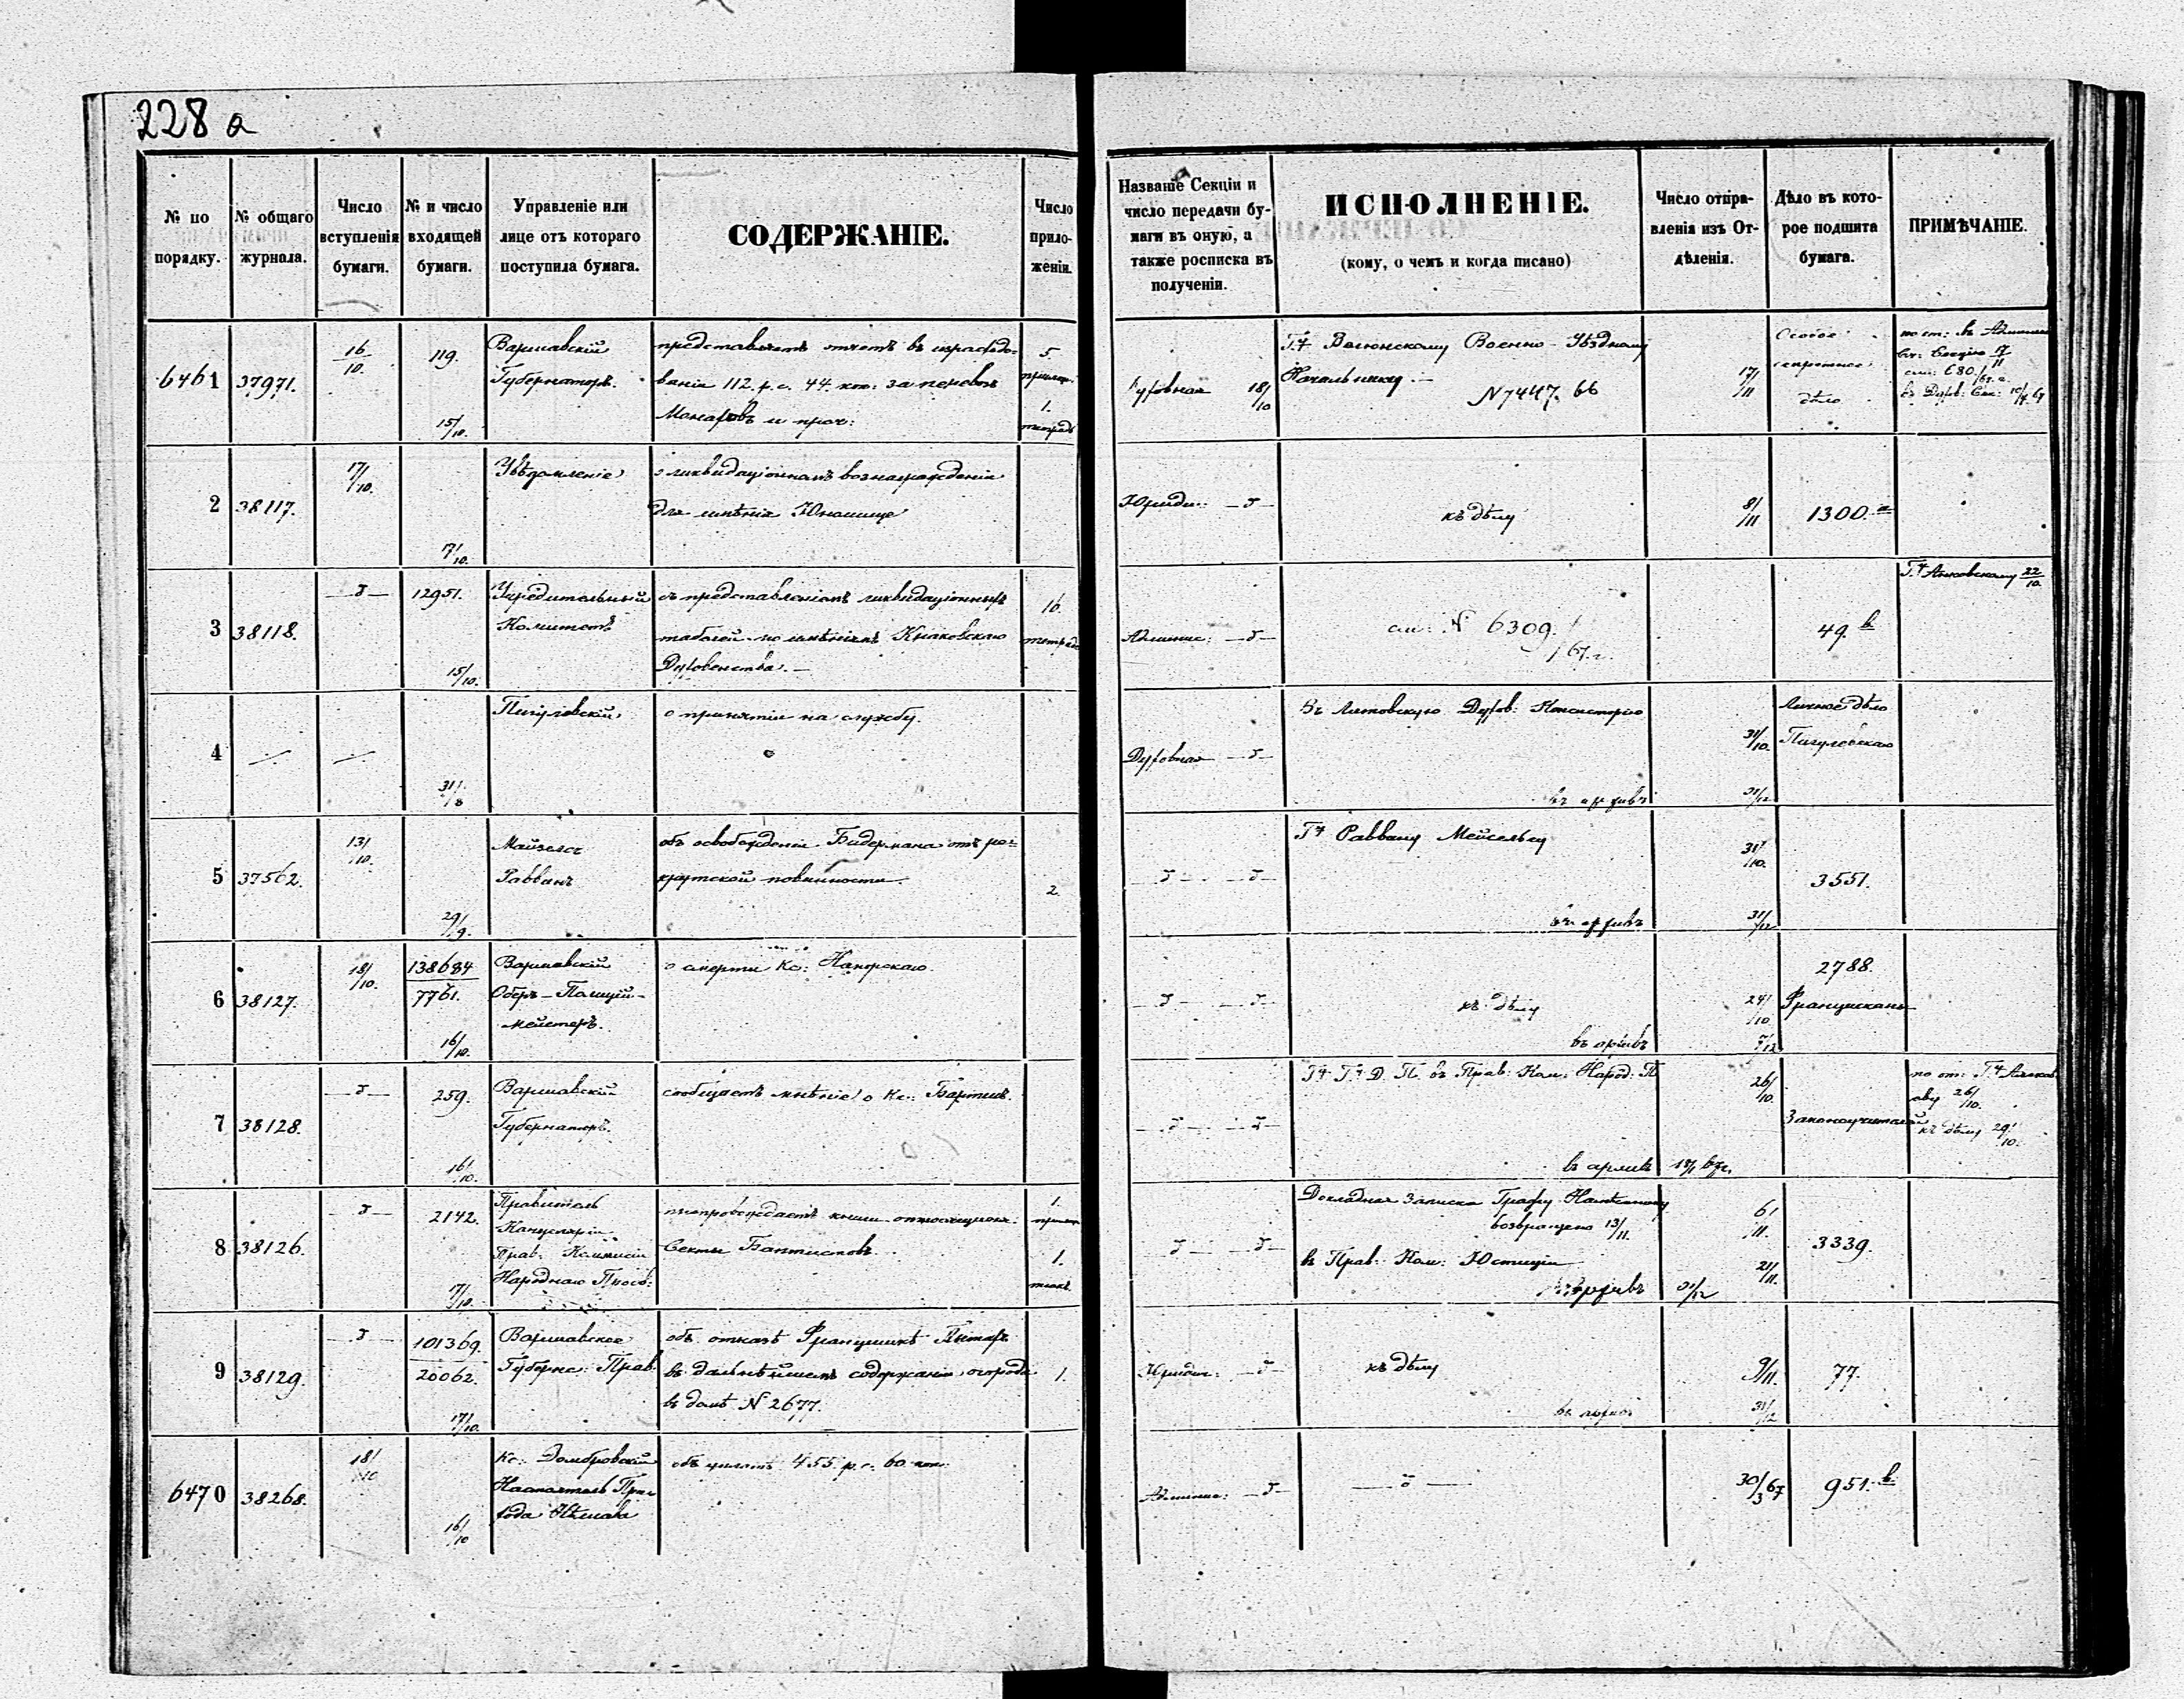 228 a
№ по порядку.
№ общаго журнала.
Число вступленія бумаги.
№ и число входящей бумаги.
Управленіе или лице отъ котораго поступила бумага.
СОДЕРЖАНІЕ.
Число приложеній.
Названіе Секціи и число передачи бумаги въ оную, а также росписка въ полученіи.
ИСПОЛНЕНІЕ.
(кому, о чемъ и когда писано)
Число отправленія изъ Отдѣленія.
Дѣло въ которое подшита бумага.
ПРИМѢЧАНІЕ.
6461 37971. 16/10. 119. 15/10.
Варшавскій
Губернаторъ.
представляетъ отчетъ въ израсходо-
ваніи 112. р. с. 44 коп: за перевозъ
Монаховъ и проч:
5.
1.
тетрадь
Духовная 18/10
Г. Велюнскому Военно-Уѣздному
Начальнику.—
N 7447. 66
17/11
Особое
секретное
дѣло
2 38117. 17/10. 17/10.
Увѣдомленіе
о ликвидаціонномъ вознагражденіи
для имѣнія
Юриди:
къ дѣлу
8/11
1300.
3 38118. 12951. 15/10.
Учредительный
Комитетъ
съ представленіемъ ликвидаціонныхъ
табелей по имѣніямъ
Духовенства.—
16.
Админис:
см: N 6309. /67 г.
49. в
22/10.
4 31/8
о принятіи на службу.
Духовная
Въ Литовскую Духов: Консисторію
въ архивъ
31/10.
31/12
Личное дѣло
5 37562. 13/10. 29/9.
Майзельс
Раввинъ
объ освобожденіи Бидермана отъ ре-
крутской повинности.
2.
Г. Раввину Мейсельсу
въ архивъ
31/10.
31/12
3551.
6 38127. 18/10. 138684 7761. 16/10.
Варшавскій
Оберъ-Полицій-
мейстеръ.
о смерти Кс:
къ дѣлу
въ архивъ
24/10
2788.
Францискане
7 38128. 259. 16/10.
Варшавскій
Губернаторъ.
сообщаетъ мнѣніе о Кс:
Г. Г. Д. П. въ Прав: Ком: Народ: П
въ архивъ
26/10.
Законоучителей
26/10.
къ дѣлу 29/10.
8 38126. 2142. 17/10.
Правитель
Канцеляріи
Прав: Комисіи
Народнаго Просв:
препровождаетъ книги относящіяся
Секты Баптистовъ.
1.
1.
Докладная Записка Графу Намѣстнику
возвращена 13/11.
въ Прав: Ком: Юстиціи
въ архивъ 31/12
6/11.
21/11.
3339.
9 38129. 101369. 20062. 17/10.
Варшавское
Губернс: Прав:
объ отказѣ
въ дальнѣйшемъ содержаніи огорода
въ домѣ N 2677.
1.
Юридич:
къ дѣлу
въ архивъ
9/11.
31/12
77.
6470 38268. 18/10 16/10
Кс: Домбровскій
Настоятель При-
хода
объ уплатѣ 455 р. с. 60 коп:
Админис:
30/3 67
951. в